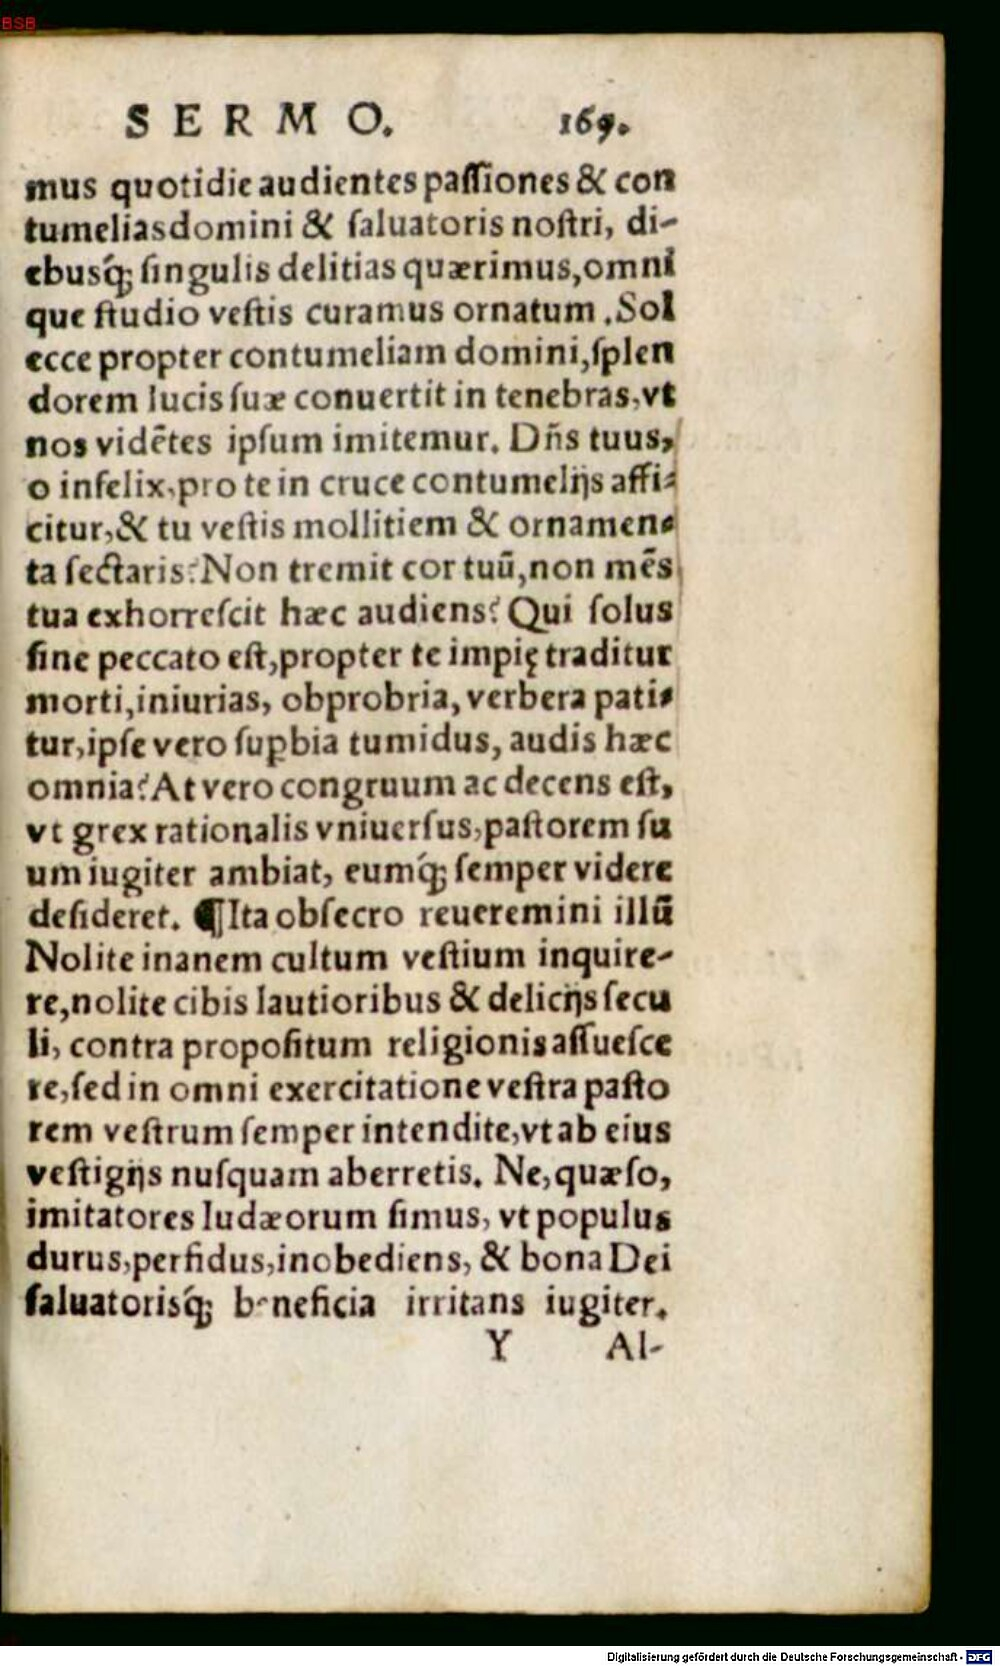 BSB
SERMO. 169.
mus quotidie audientes paſſiones & con
tumelias domini & ſaluatoris noſtri, di-
ebusq́; ſingulis delitias quærimus, omni
que ſtudio veſtis curamus ornatum. Sol
ecce propter contumeliam domini, ſplen
dorem lucis ſuæ conuertit in tenebras, vt
nos vidẽtes ipſum imitemur. Dñs tuus,
o infelix, pro te in cruce contumelijs affi-
citur, & tu veſtis mollitiem & ornamen-
ta ſectaris? Non tremit cor tuũ, non mẽs
tua exhorreſcit hæc audiens? Qui ſolus
ſine peccato eſt, propter te impię traditur
morti, iniurias, obprobria, verbera pati-
tur, ipſe vero ſuꝑbia tumidus, audis hæc
omnia? At vero congruum ac decens eſt,
vt grex rationalis vniuerſus, paſtorem ſu
um iugiter ambiat, eumq́; ſemper videre
deſideret. ¶Ita obſecro reueremini illũ
Nolite inanem cultum veſtium inquire-
re, nolite cibis lautioribus & delicijs ſecu
li, contra propoſitum religionis aſſueſce
re, ſed in omni exercitatione veſtra paſto
rem veſtrum ſemper intendite, vt ab eius
veſtigijs nuſquam aberretis. Ne, quæſo,
imitatores Iudæorum ſimus, vt populus
durus, perfidus, inobediens, & bona Dei
ſaluatorisq́; beneficia irritans iugiter.
Y Al-
Digitalisierung gefördert durch die Deutsche Forschungsgemeinschaft - DFG